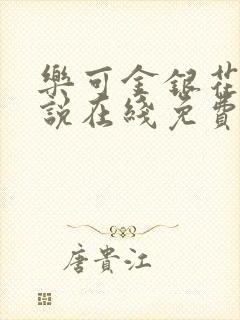 樂可金銀花
說在綫免費
唐貴江